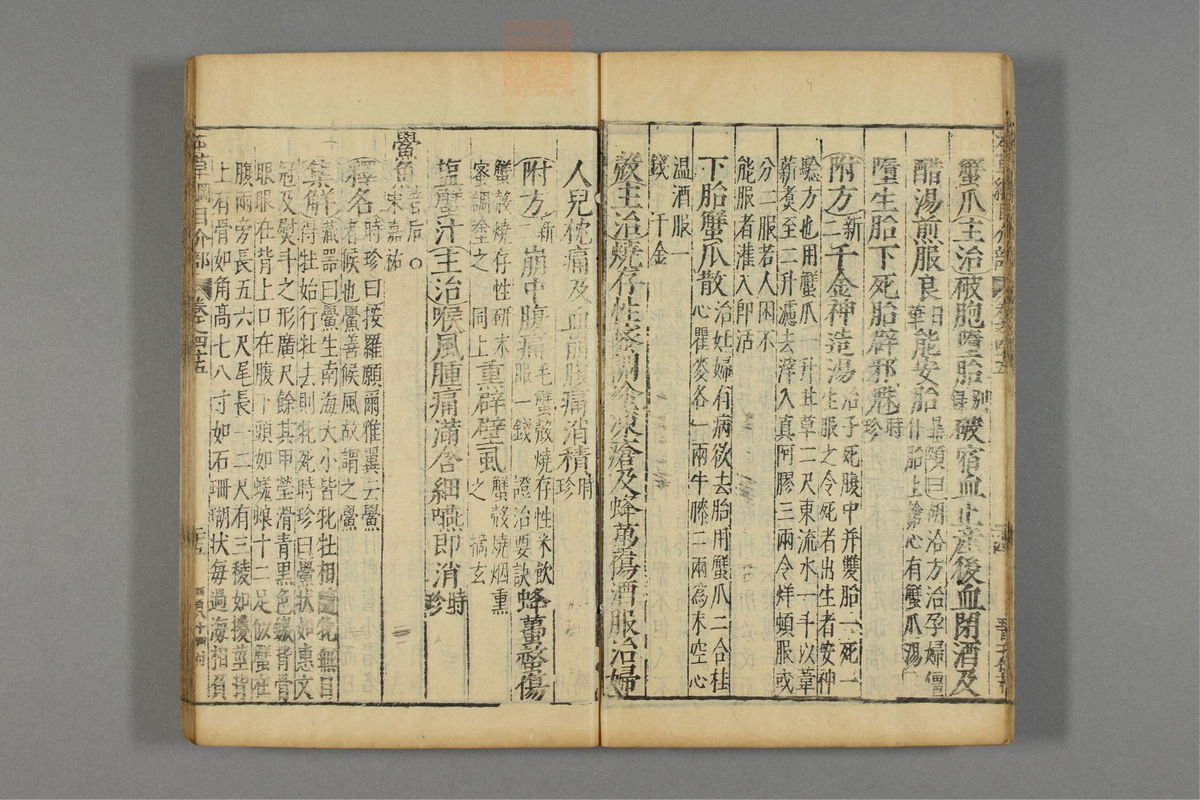 蟹爪主治破胞墮胎别錄破宿血止產後血閉酒及
醋湯煎服良日華能安胎鼎曰胡洽方治孕婦僵仆胎上搶心有蟹爪湯
墮生胎下死胎辟邪魅時珍
附方新二千金神造湯治子死腹中并雙胎一死一生服之令死者出生者安神
驗方也用蟹爪一升甘草二尺東流水一斗以葦
薪煮至二升濾去滓入真阿膠三兩令烊頓服或
分二服若人困不
能服者灌入即活
下胎蟹爪散治妊婦有病欲去胎用蟹爪二合桂心瞿麥各一兩牛膝二兩為末空心
温酒服一
錢千金
殻主治燒存性蜜調塗凍瘡及蜂蠆傷酒服治婦
人兒枕痛及血崩腹痛消積時珍
附方新三崩中腹痛毛蟹殻燒存性米飲服一錢證治要訣蜂蠆螫傷
蟹殻燒存性研末
蜜調塗之同上熏辟壁虱蟹殻燒烟熏之摘玄
鹽蟹汁主治喉風腫痛滿含細嚥即消時珍
鱟魚音后○宋嘉祐
釋名時珍曰按羅願爾雅翼云鱟者候也鱟善候風故謂之鱟
集解藏器曰鱟生南海大小皆牝牡相隨牝無目得牡始行牡去則牝死時珍曰鱟狀如惠文
冠及熨斗之形廣尺餘其甲瑩滑青黑色鏊背骨
眼眼在背上口在腹下頭如蜣蜋十二足似蟹在
腹兩旁長五六尺尾長一二尺有三稜如㯶莖背
上有骨如角高七八寸如石珊瑚狀每過海相負
本草綱目介部 卷之四十五